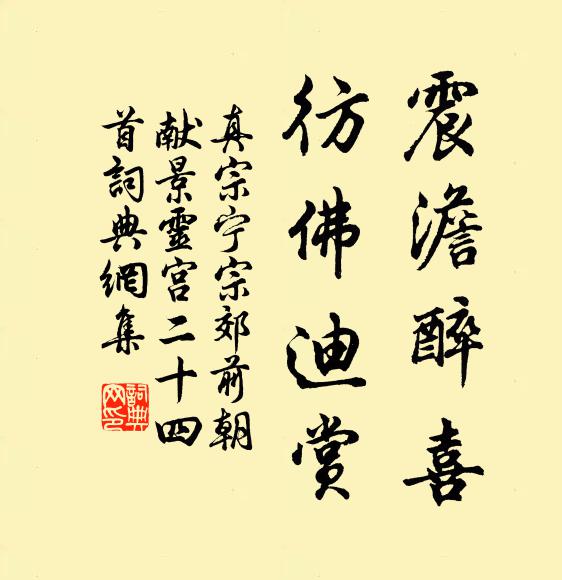 震澹醉喜
彷佛迪赏
真宗宁宗郊前朝
献景靈宫二十四
首詞典網集
詞典
网印